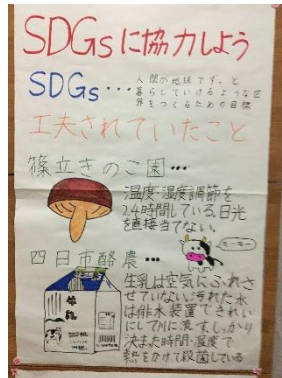 SDGsに協力しよう
SDGs…人間が地球で、ずっと
暮らしていけるような世
界をつくるための目標
工夫されていたこと
篠立きのこ園…
温度・湿度調節を
24時間している。日光
を直接当てない。
四日市酪農…
モーモー
牛乳
生乳は空気にふれさ
せていない。汚れた水
は排水装置できれい
にして川に流す。しっかり
決また時間・温度で
熱をかけて殺菌している